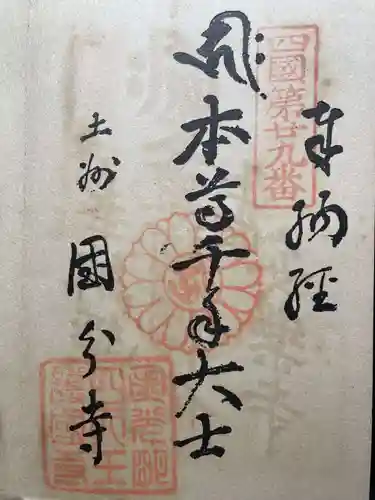 奉納經
四國第廿九番
本尊千手大士
土州
國分寺